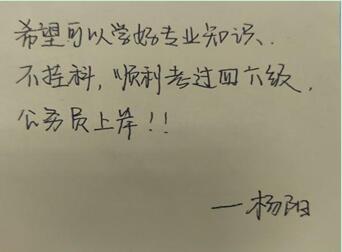 希望可以学好专业知识、
不挂科，顺利考过四六级，
公务员上岸！！
—杨阳